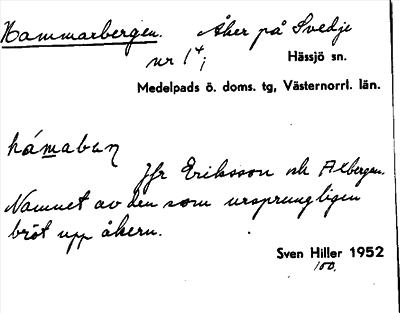 Hammarbergen. Åker på Svedje
nr 1⁴; Hässjö sn.
Medelpads ö. doms. tg, Västernorrl. län.
hámaban
Jfr Eriksson och Axbergen.
Namnet av den som ursprungligen
bröt upp åkern.
Sven Hiller 1952
100.